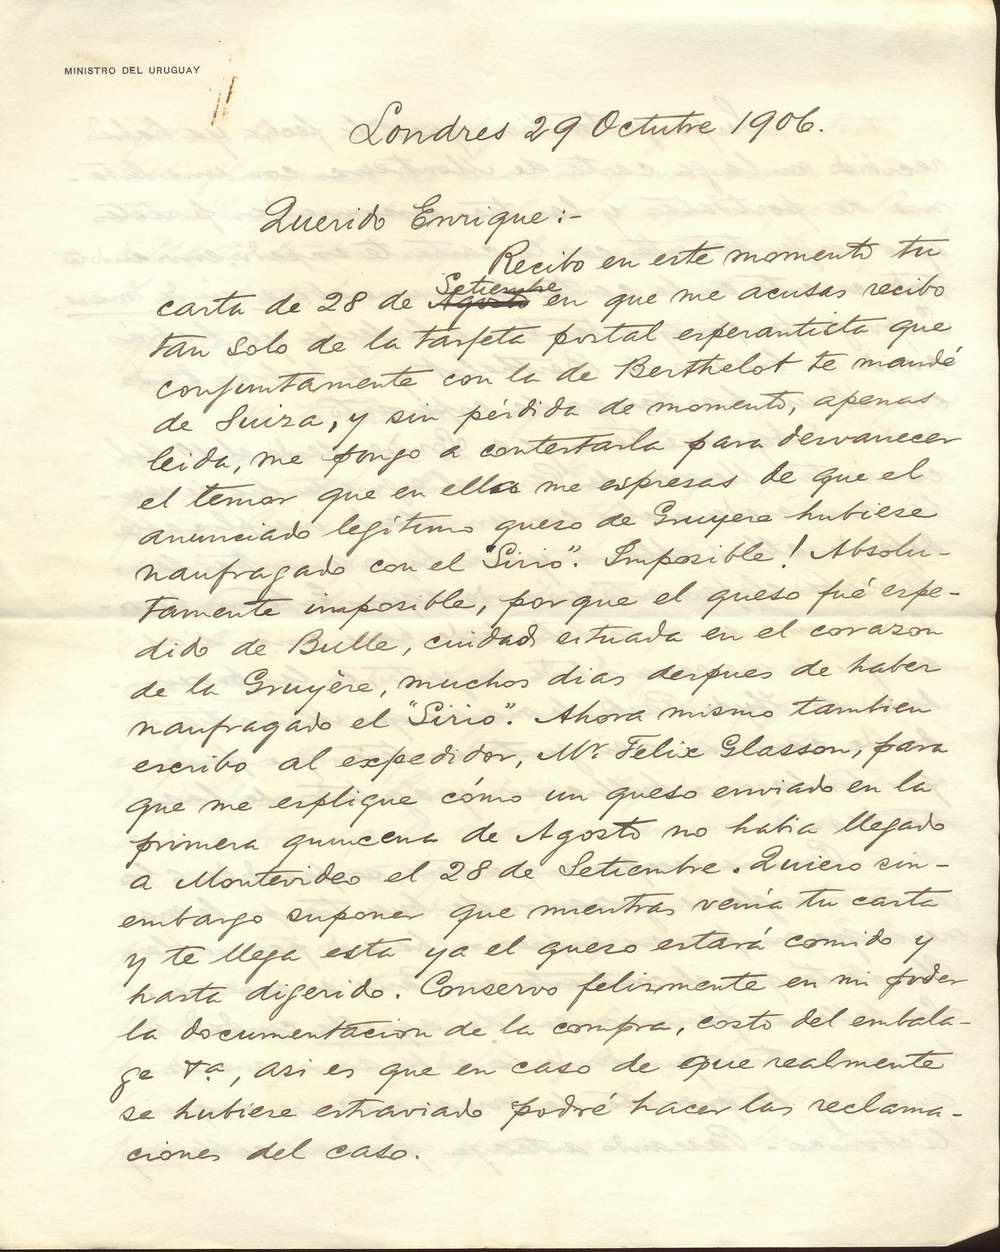 MINISTRO DEL URUGUAY
Londres 29 Octubre 1906.
Querido Enrique:-
Recibo en este momento tu
Setiembre
carta de 28 de Agosto en que me acusas recibo
tan solo de la tarjeta postal esperantista que
conjuntamente con la de Berthelot te mandé
de Suiza, y sin pérdida de momento, apenas
leida, me pongo a contestarla para desvanecer
el temor que en ella me espresas de que el
anunciado legítimo queso de Gruyere hubiese
naufragado con el "Sirio". Imposible! Absolu-
tamente imposible, porque el queso fué espe-
dido de Bulle, ciudad situada en el corazon
de la Gruyère, muchos dias despues de haber
naufragado el "Sirio". Ahora mismo tambien
escribo al expedidor, Mr. Félix Glasson, para
que me esplique cómo un queso enviado en la
primera quincena de Agosto no habia llegado
a Montevideo el 28 de Setiembre. Quiero sin-
embargo suponer que mientras venía tu carta
y te llega esta ya el queso estará comido y
hasta digerido. Conservo felizmente en mi poder
la documentacion de la compra, costo del embala-
ge &a, asi es que en caso de que realmente
se hubiere estraviado podré hacer las reclama-
ciones del caso.